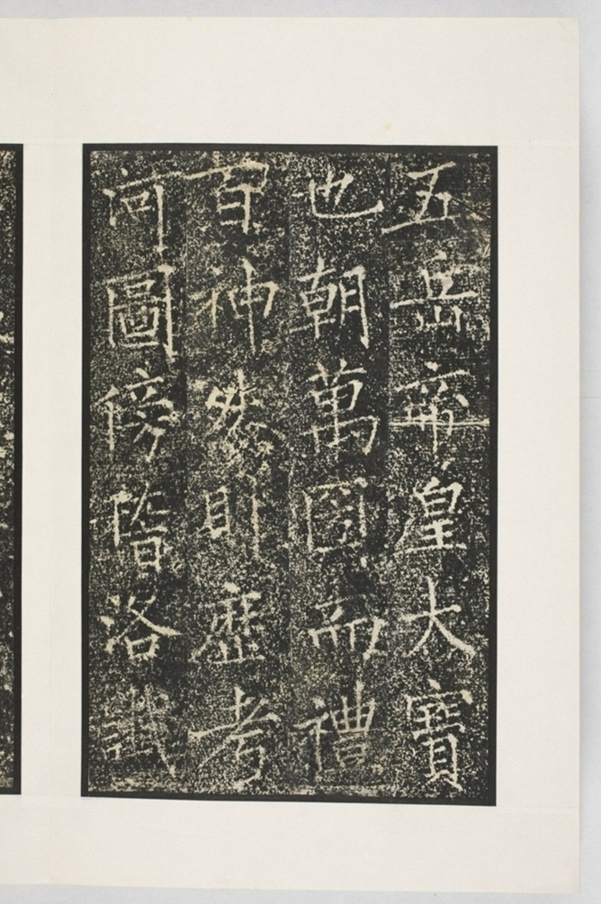 五岳帝皇大寶
也朝萬國而禮
百神然則歷考
河圖傍階洛